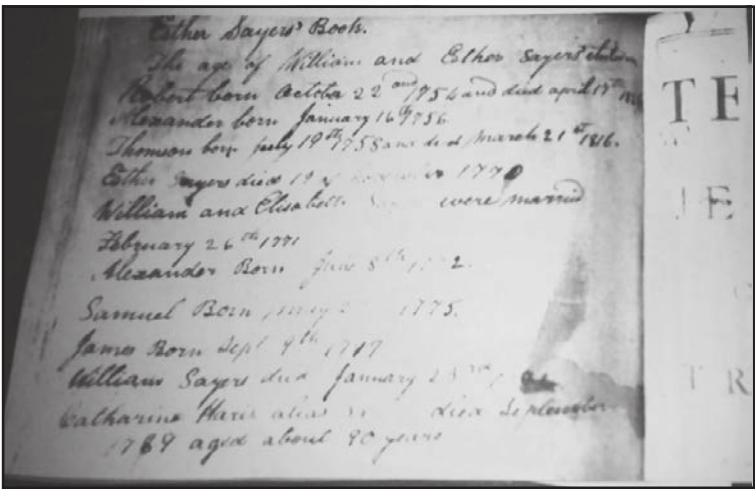 Esther Sayers' Book.
The age of William and Esther Sayers' children
Robert born October 22nd 1754 and died april 17th
Alexander born January 16th 1756
Thomson born july 19th 1758 and died march 21st 1816.
Esther Sayers died 19 1770
William and Elisabeth were married
February 26th 1771
Alexander Born June 8th
Samuel Born may 1775.
James Born Sept 9th
William Sayers died January 23rd
Catharine Haris alias died September
1789 aged about 90 years
TE
JE
T R